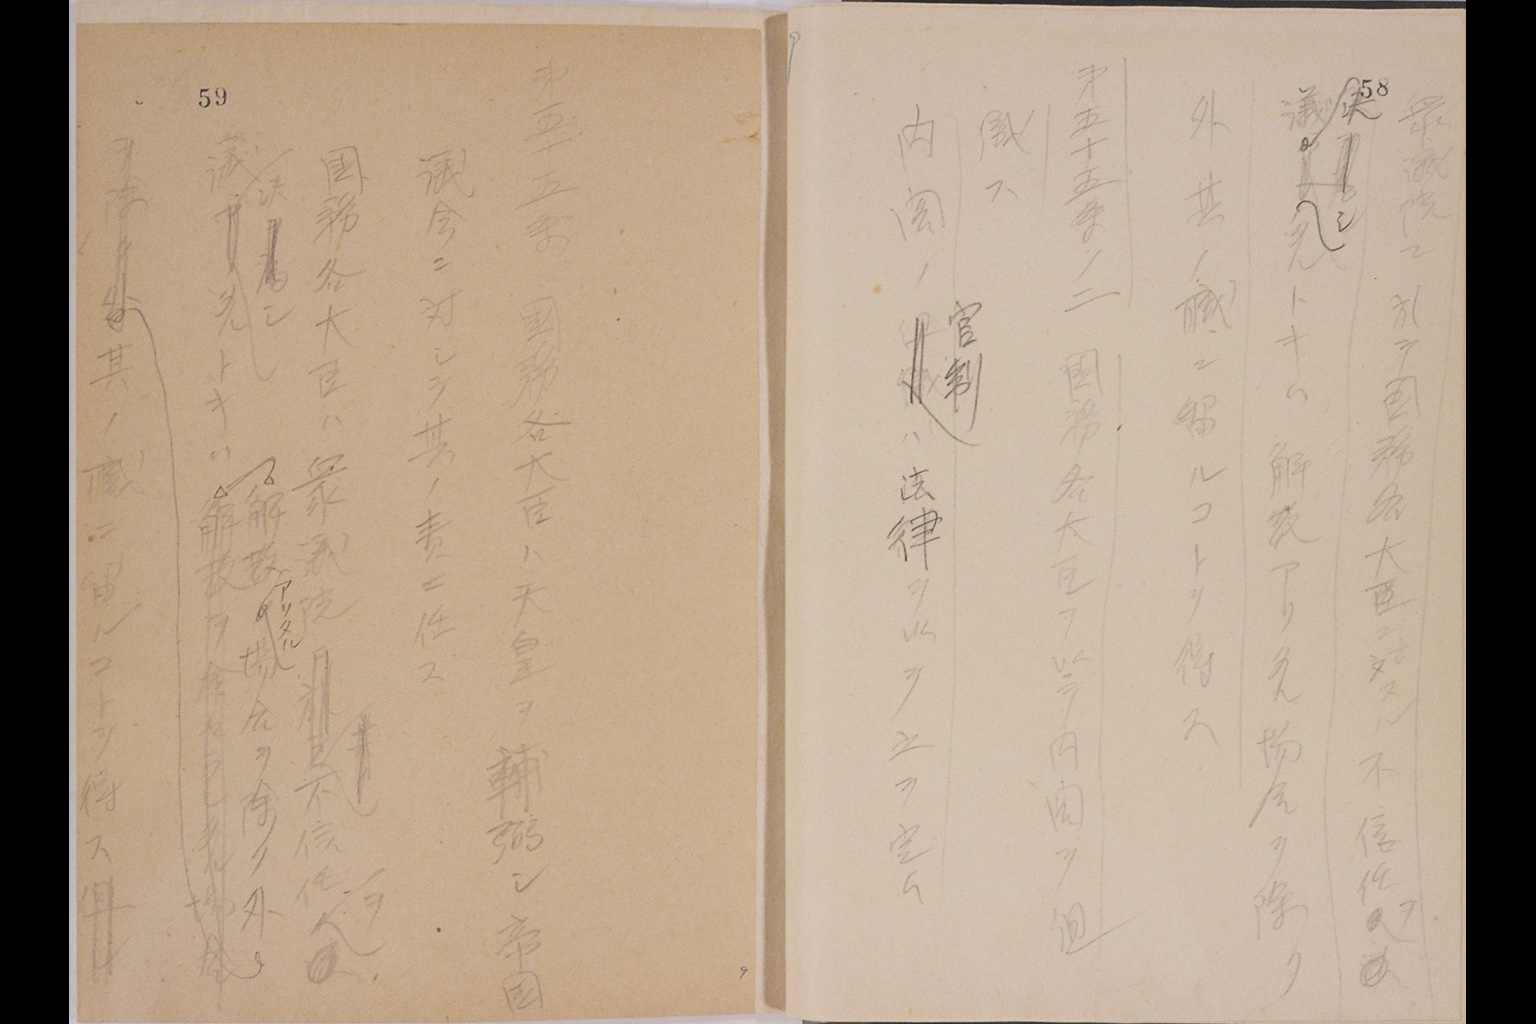 58
衆議院ニ於テ国務各大臣ニ対スル不信任ヲ
決
シ
議
タルトキハ解散アリタル場合ヲ除ク
外其ノ職ニ留ルコトヲ得ス
第五十五条ノ二 国務各大臣ヲ以テ内閣ヲ組
成ス
官制
内閣ノ組織ハ法律ヲ以テ之ヲ定ム
59
第五十五条 国務各大臣ハ天皇ヲ輔弼シ帝国
議会ニ対シテ其ノ責ニ任ス
ヲ
国務各大臣ハ衆議院不信任
決
シ
解散
アリタル
場合ヲ除ク外
議
タルトキハ解散ヲ
場合
其ノ職ニ留ルコトヲ得ス但